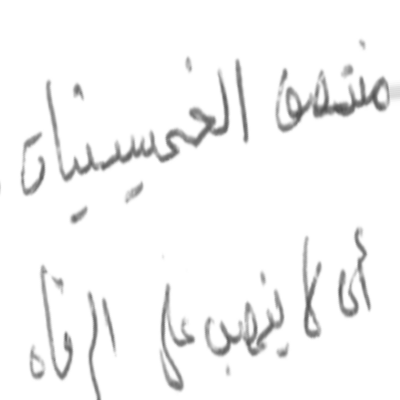 منتصف الخمسينيات
أى لا ينصب على الرفاه